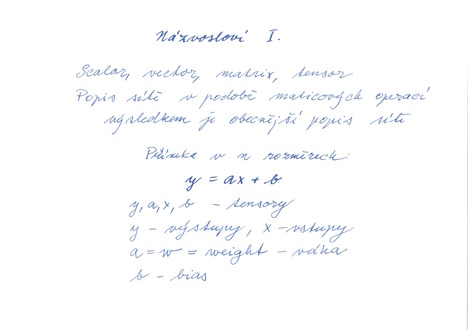 Názvosloví I.
Scalar, vector, matrix, tensor
Popis sítě v podobě maticových operací
výsledkem je obecnější popis sítě
Přímka v n rozměrech:
y = ax + b
y, a, x, b - tensory
y - výstupy, x - vstupy
a = w = weight - váha
b - bias